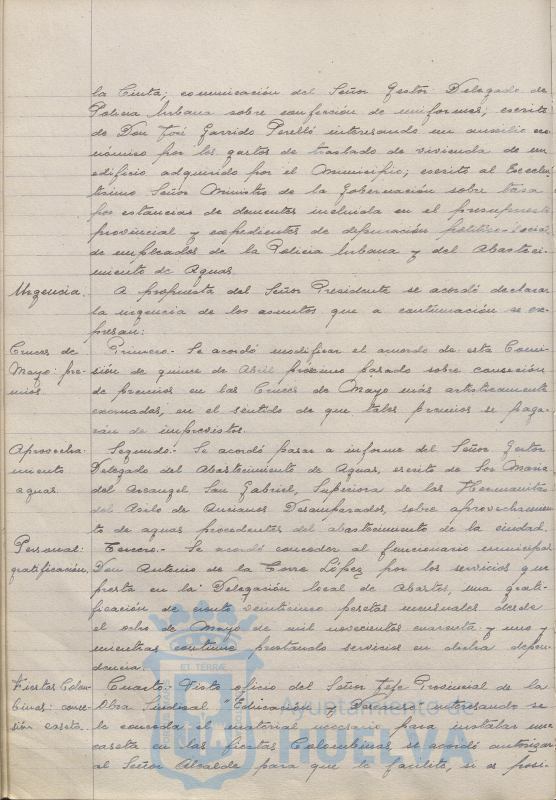 la Cinta; comunicación del Señor Gestor Delegado de
Policia Urbana sobre confección de uniformes; escrito
de Don José Garrido Perelló interesando un auxilio eco
nómico por los gastos de traslado de vivienda de un
edificio adquirido por el Municipio; escrito al Excelen
tísimo Señor Ministro de la Gobernación sobre tasa
por estancias de dementes incluida en el presupuesto
provincial y expedientes de depuración politico-social
de empleados de la Policia Urbana y del Abasteci-
miento de Aguas.
Urgencia. A propuesta del Señor Presidente se acordó declarar
la urgencia de los asuntos que a continuación se ex-
presan:
Cruces de Mayo: pre-
mios.
Primero.- Se acordó modificar el acuerdo de esta Comi-
sión de quince de Abril próximo pasado sobre concesión
de premios en las Cruces de Mayo más artisticamente
exornadas, en el sentido de que tales premios se paga-
rán de imprevistos.
Aprovecha-
miento
aguas.
Segundo.- Se acordó pasar a informe del Señor Gestor
Delegado del Abastecimiento de Aguas, escrito de Sor Maria
del Arcangel San Gabriel, Superiora de las Hermanitas
del Asilo de Ancianos Desamparados, sobre aprovechamien
to de aguas procedentes del abastecimiento de la ciudad.
Personal:
gratificación
Tercero.- Se acordó conceder al funcionario municipal
Don Antonio de la Torre López por los servicios que
presta en la Delegación local de Abastos, una grati-
ficación de ciento veinticinco pesetas mensuales desde
el ocho de Mayo de mil novecientos cuarenta y uno y
mientras continue prestando servicios en dicha depen-
dencia.
Fiestas Colom-
binas: conce-
sión caseta.
Cuarto.- Visto oficio del Señor Jefe Provincial de la
Obra Sindical "Educación y Descanso" interesando se
le conceda el material necesario para instalar una
caseta en las fiestas Colombinas se acordó autorizar
al Señor Alcalde para que lo facilite, si es posi-
ET TERRÆ
Ayuntamiento de
HUELVA